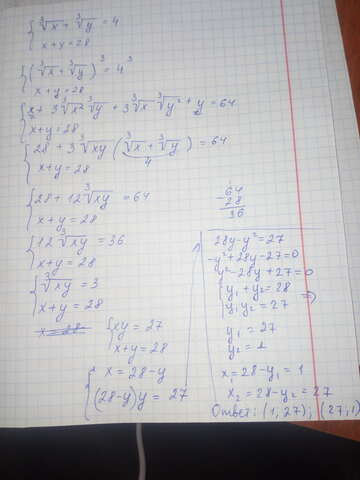 ∛x + ∛y = 4
x + x = 28
(∛x + ∛y)³ = 4³
x + y = 28
x + 3∛x² ∛y + 3∛x ∛y² + y = 64
x + y = 28
28 + 3∛xy (∛x + ∛y) = 64
4
x + y = 28
28 + 12∛xy = 64
x + y = 28
64
- 28
36
12∛xy = 36
x + y = 28
∛xy = 3
x + y = 28
x = 28
xy = 27
x + y = 28
x = 28 - y
(28 - y)y = 27
28y - y² = 27
-y² + 28y - 27 = 0
y² - 28y + 27 = 0
y₁ + y₂ = 28
y₁ y₂ = 27 ⇒
y₁ = 27
y₂ = 1
x₁ = 28 - y₁ = 1
x₂ = 28 - y₂ = 27
Ответ: (1, 27); (27, 1)